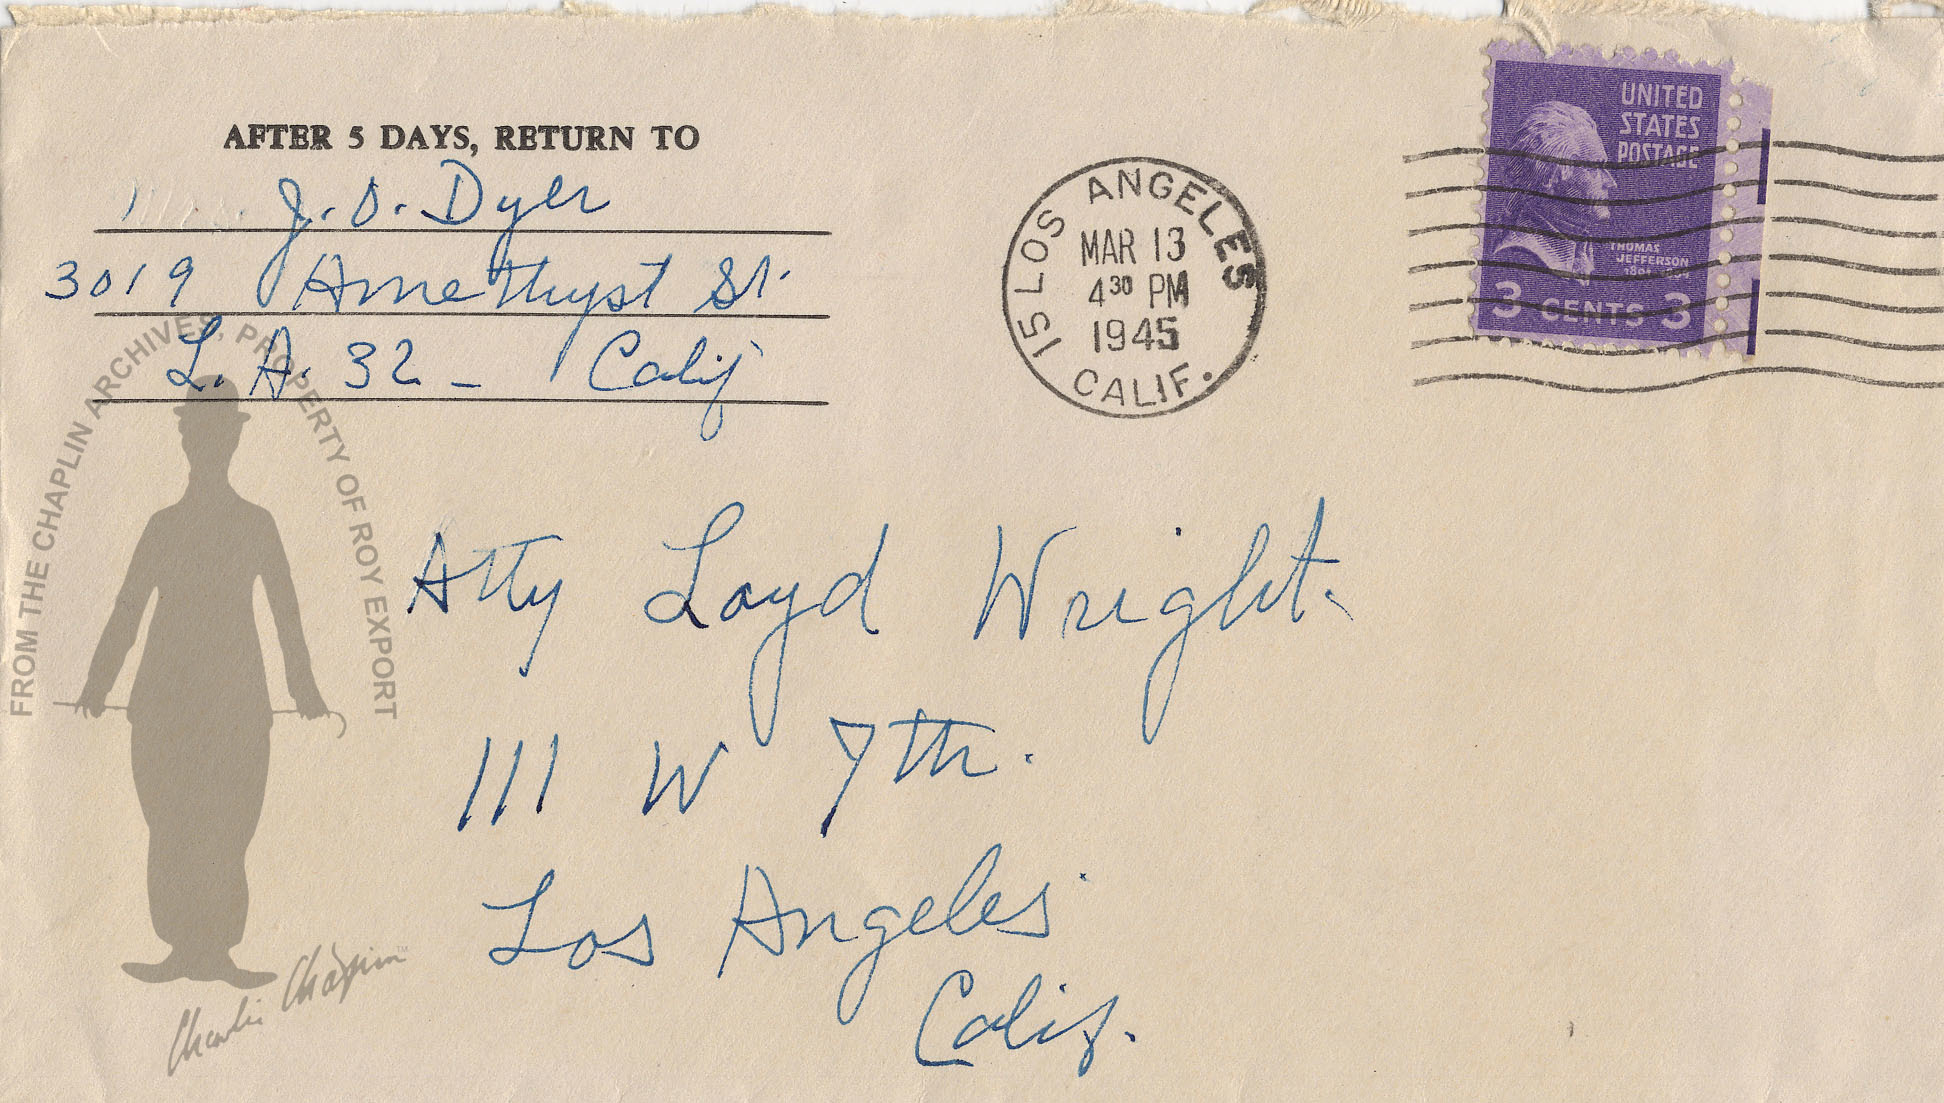 AFTER 5 DAYS, RETURN TO
J. O. Dyer
3019 Amethyst St.
L. A. 32 - Calif
15 LOS ANGELES
MAR 13
4 30 PM
1945
CALIF.
UNITED
STATES
POSTAGE
THOMAS
JEFFERSON
3 CENTS 3
Atty Loyd Wright.
111 W 7th.
Los Angeles
Calif.
FROM THE CHAPLIN ARCHIVES, PROPERTY OF ROY EXPORT
Charlie Chaplin